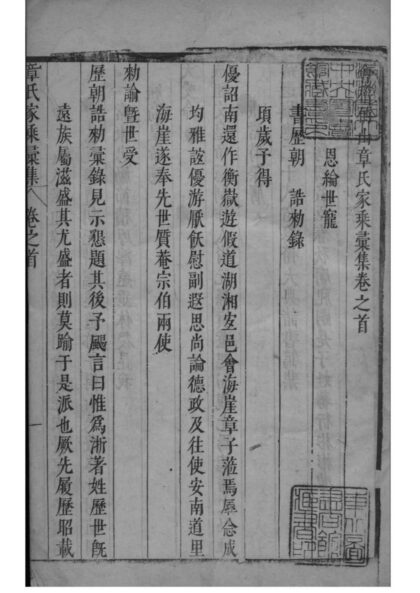 山章氏家乘彙集卷之首
恩綸世寵
書歷朝 誥勅錄
頃歲予得
優詔南還作衡嶽遊假道湖湘寔邑會海崖章子蒞焉辱念咸
均雅誼優游厭飫慰副遐思尚論德政及往使安南道里
海崖遂奉先世質菴宗伯兩使
勅諭暨世受
歷朝誥勅彙錄見示懇題其後予颺言曰惟為浙著姓歷世旣
遠族屬滋盛其尤盛者則莫踰于是派也厥先履歷昭載
章氏家乘彙集 卷之首